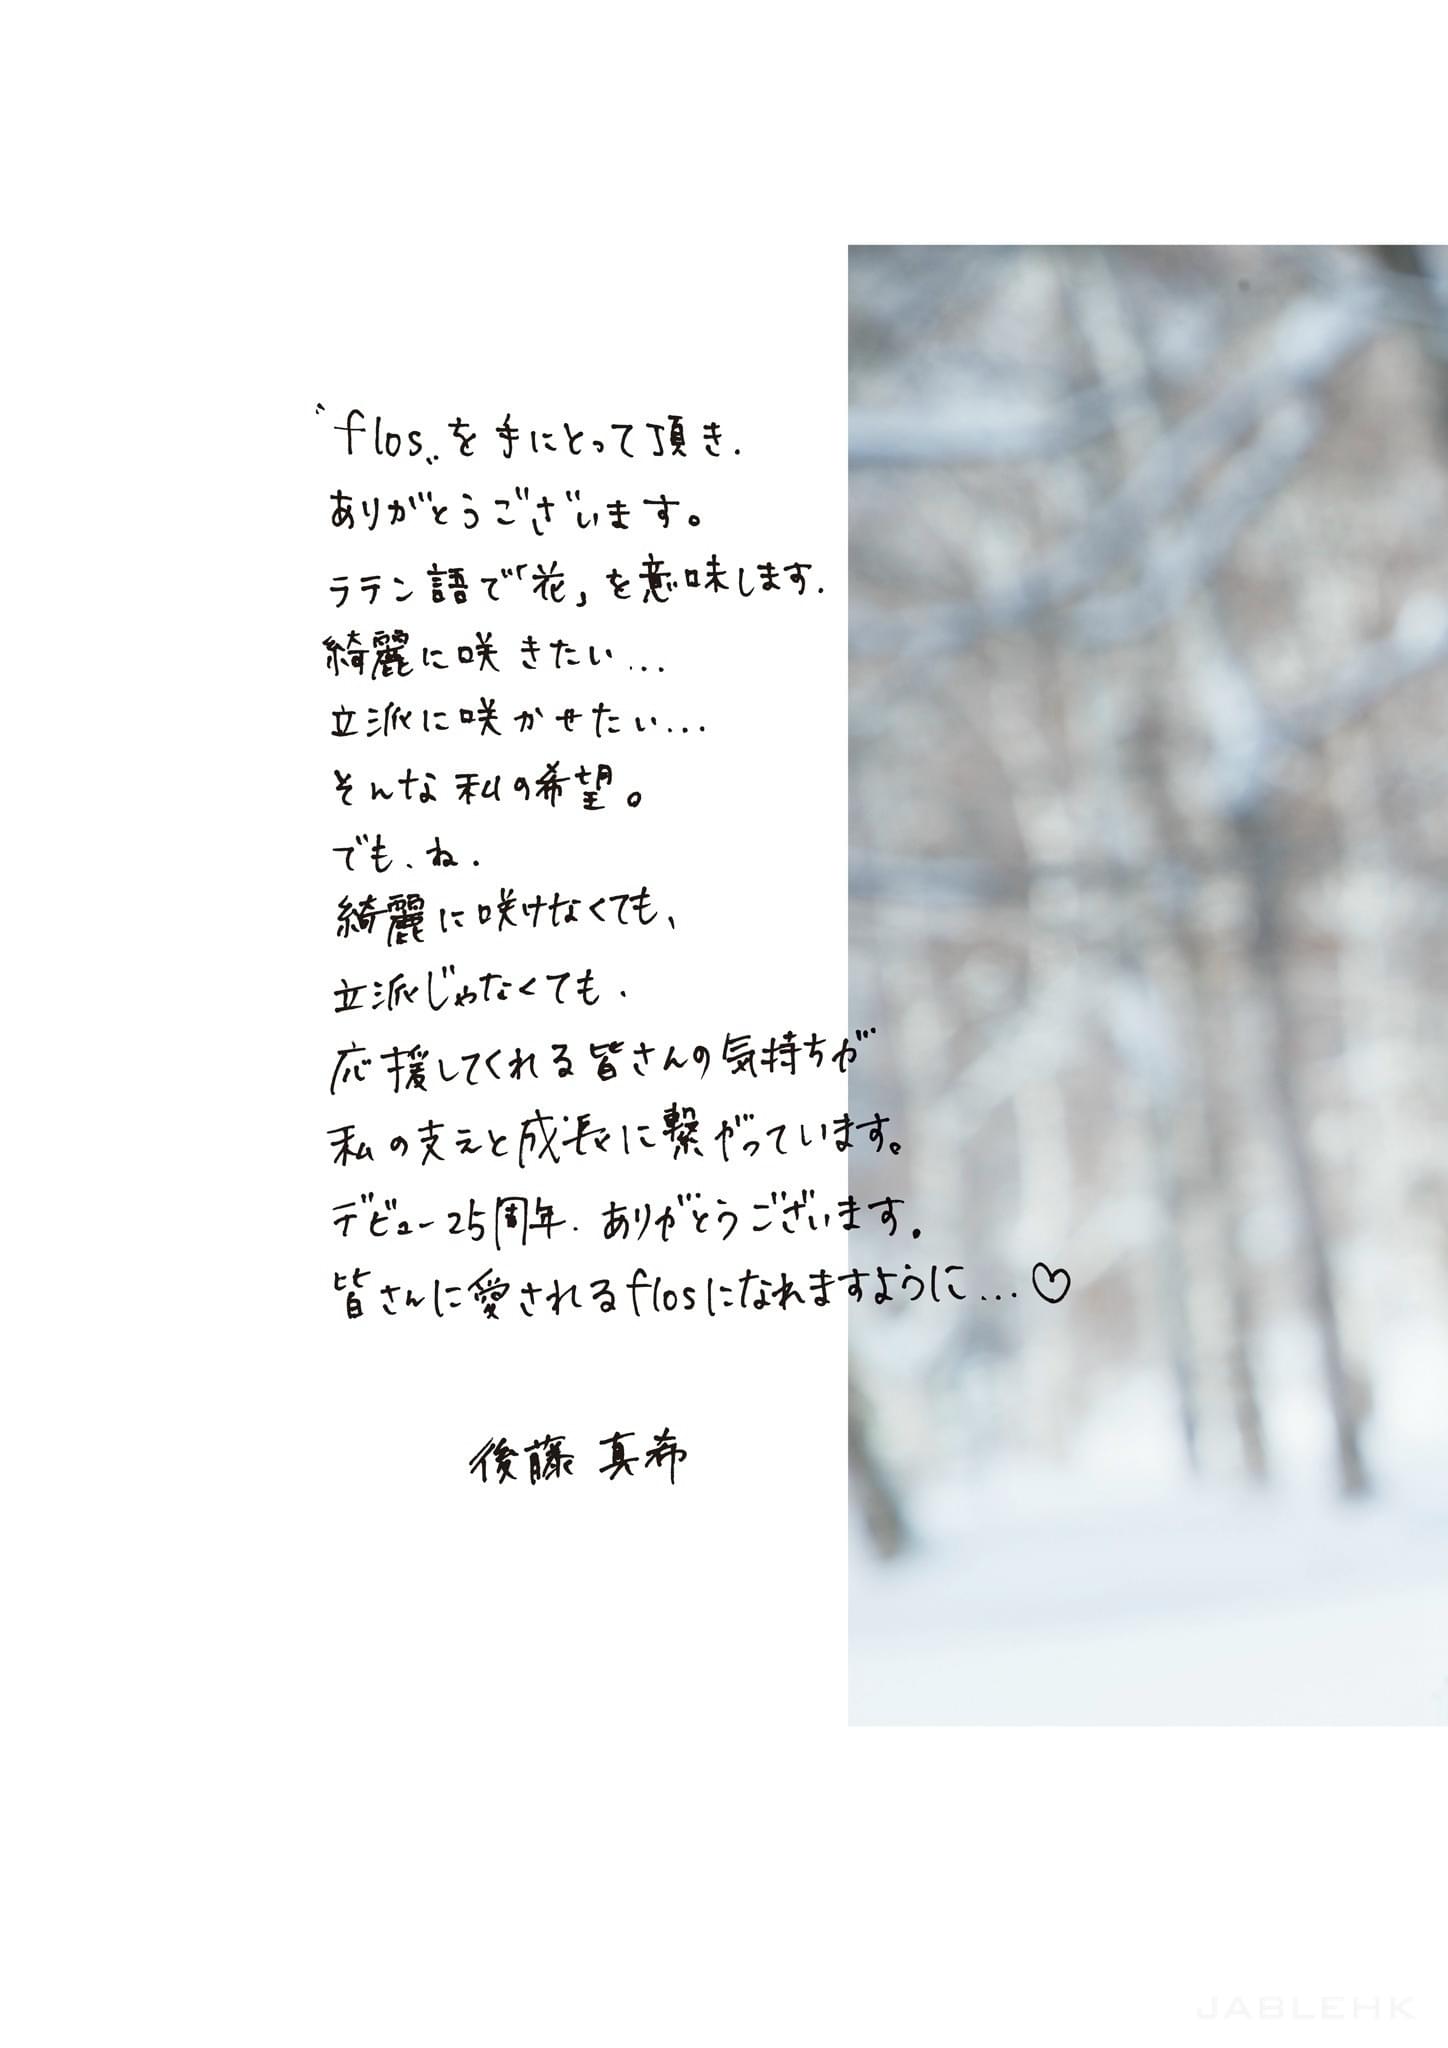 〝flos〟を手にとって頂き.
ありがとうございます。
ラテン語で「花」を意味します.
綺麗に咲きたい...
立派に咲かせたい...
そんな私の希望。
でも、ね.
綺麗に咲けなくても、
立派じゃなくても.
応援してくれる皆さんの気持ちが
私の支えと成長に繋がっています。
デビュー25周年. ありがとうございます.
皆さんに愛されるflosになれますように...♡
後藤 真希
JABLEHK